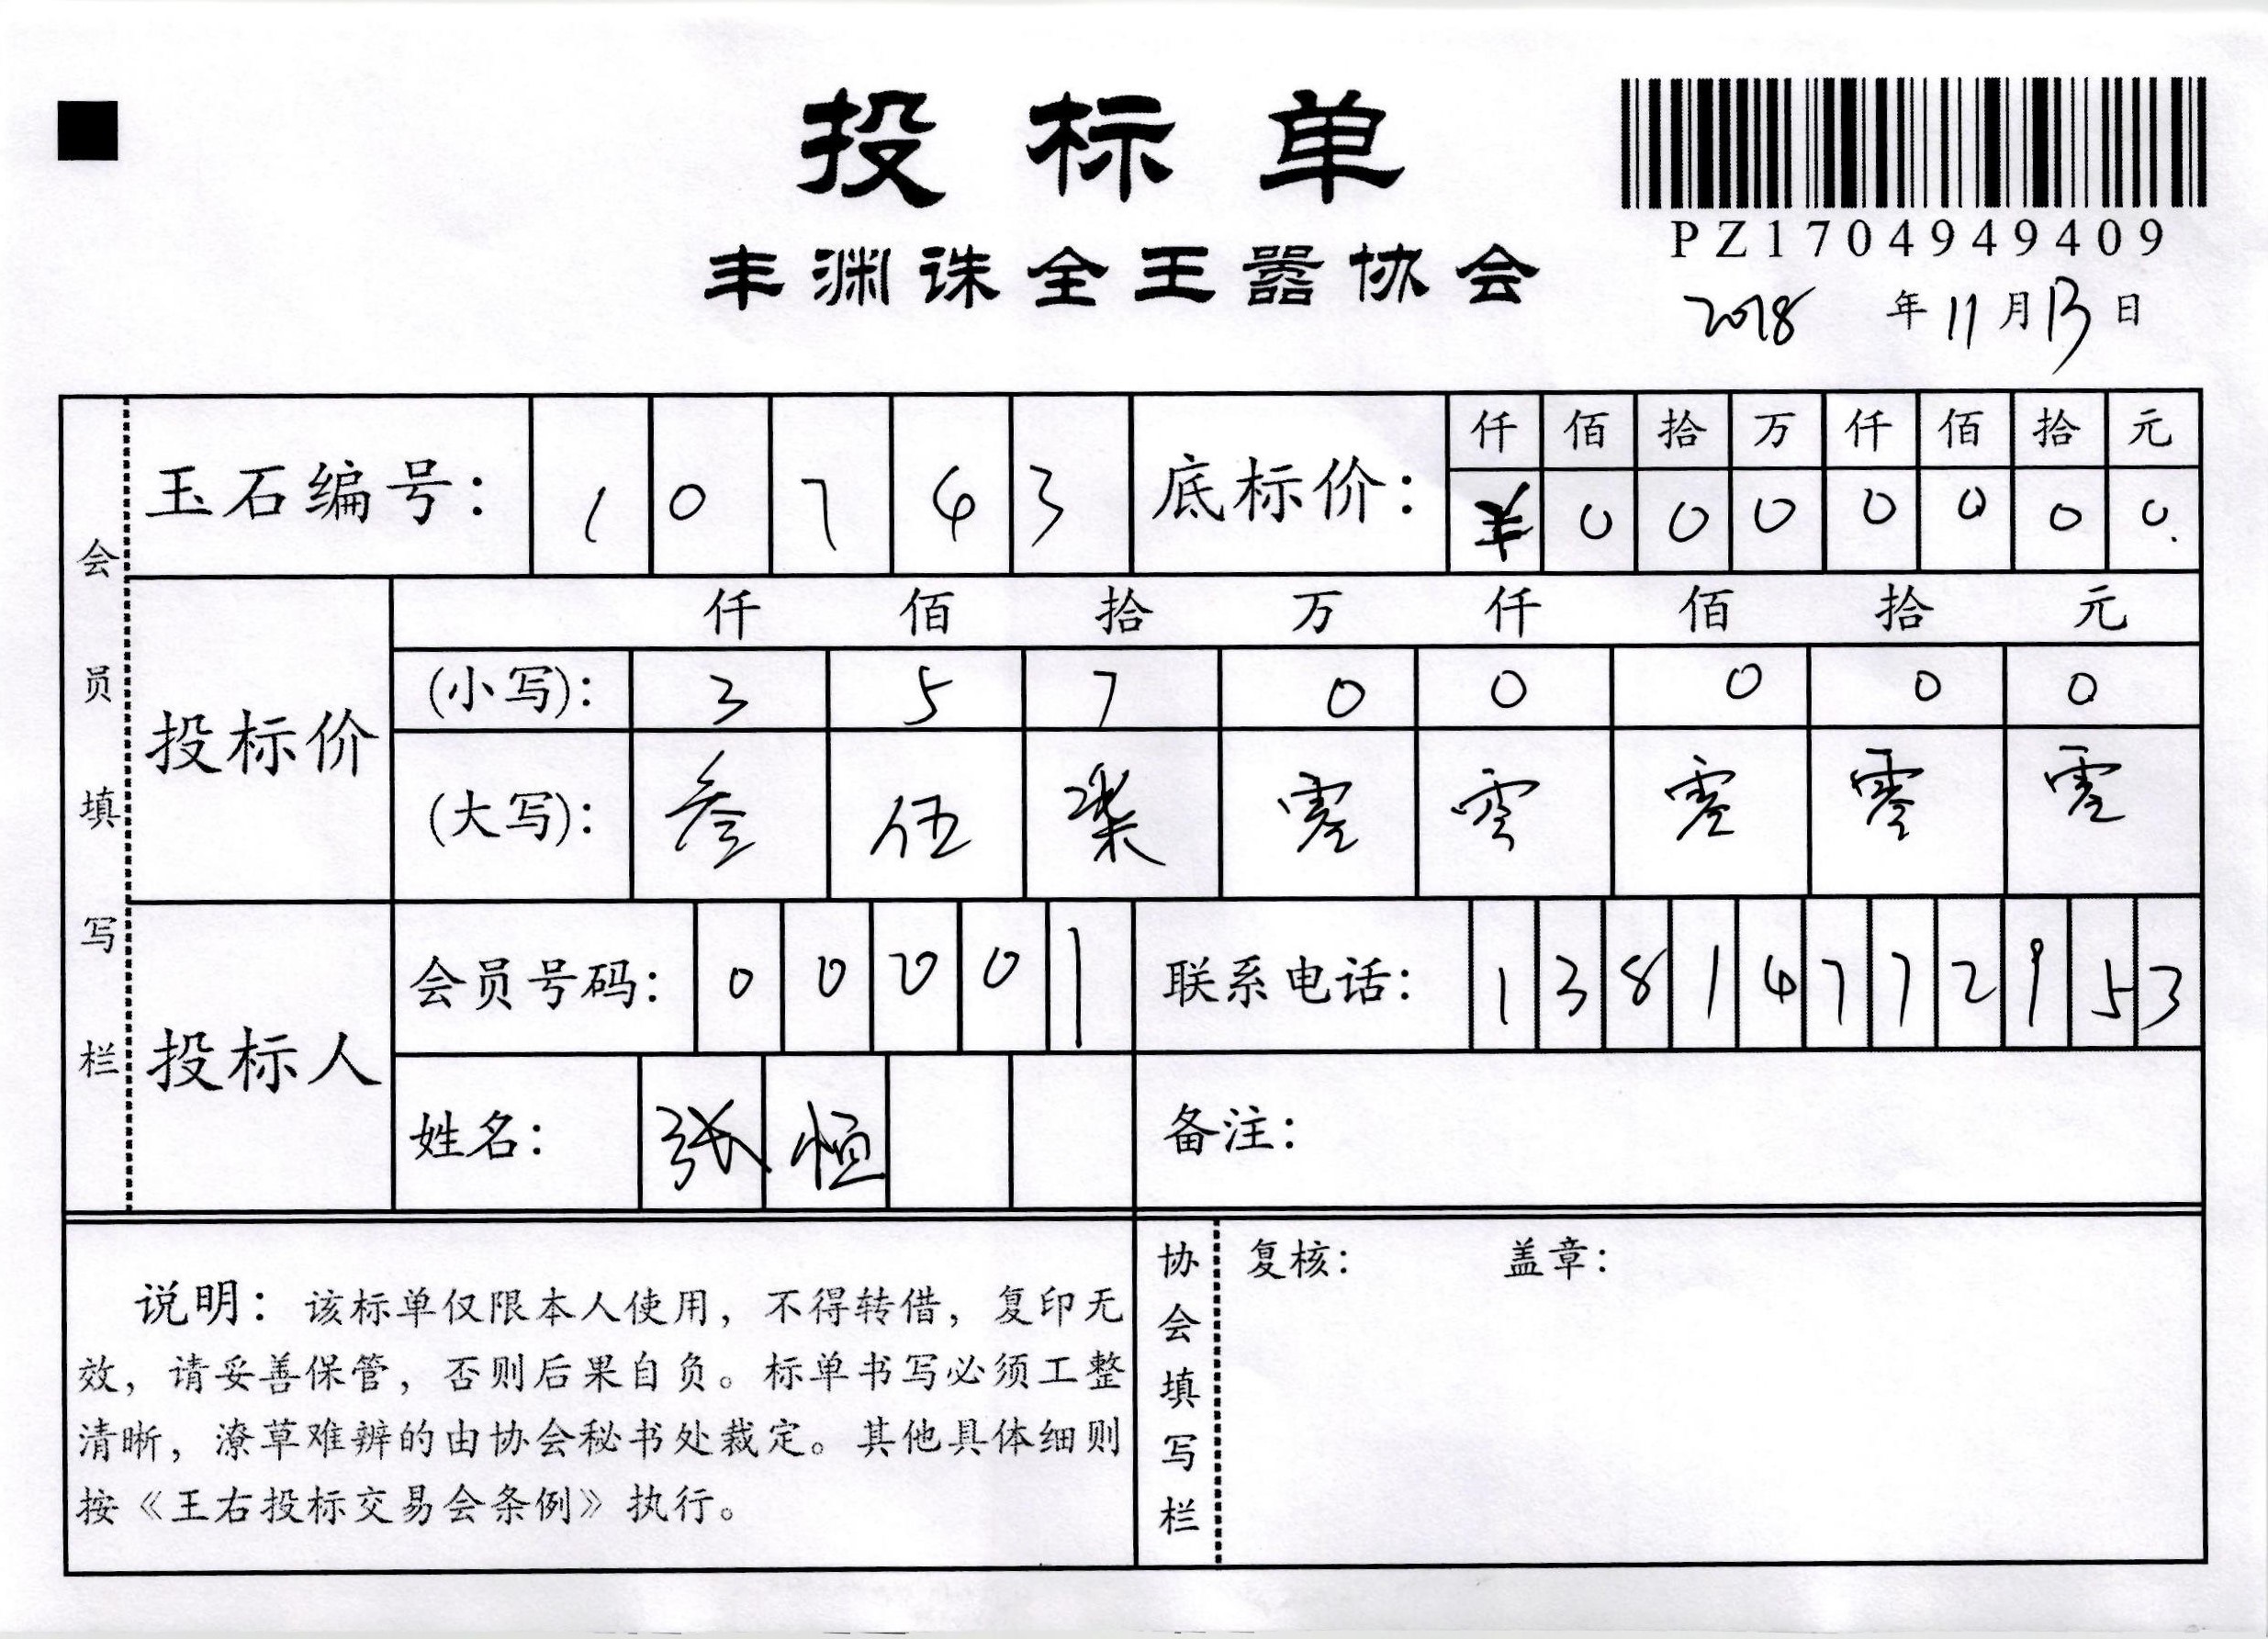 投标单
丰渊诛全王嚣协会
PZ1704949409
2018 年 11 月 13 日
会员填写栏
玉石编号： 1 0 7 4 3
底标价： 仟 佰 拾 万 仟 佰 拾 元
¥ 0 0 0 0 0 0 0.
投标价
仟 佰 拾 万 仟 佰 拾 元
(小写)： 3 5 7 0 0 0 0 0
(大写)： 叁 伍 柒 零 零 零 零 零
投标人
会员号码： 0 0 0 0 1
联系电话： 1 3 8 1 4 7 7 2 9 5 3
姓名： 张 恒
备注：
说明：该标单仅限本人使用，不得转借，复印无
效，请妥善保管，否则后果自负。标单书写必须工整
清晰，潦草难辨的由协会秘书处裁定。其他具体细则
按《王右投标交易会条例》执行。
协会填写栏
复核： 盖章：